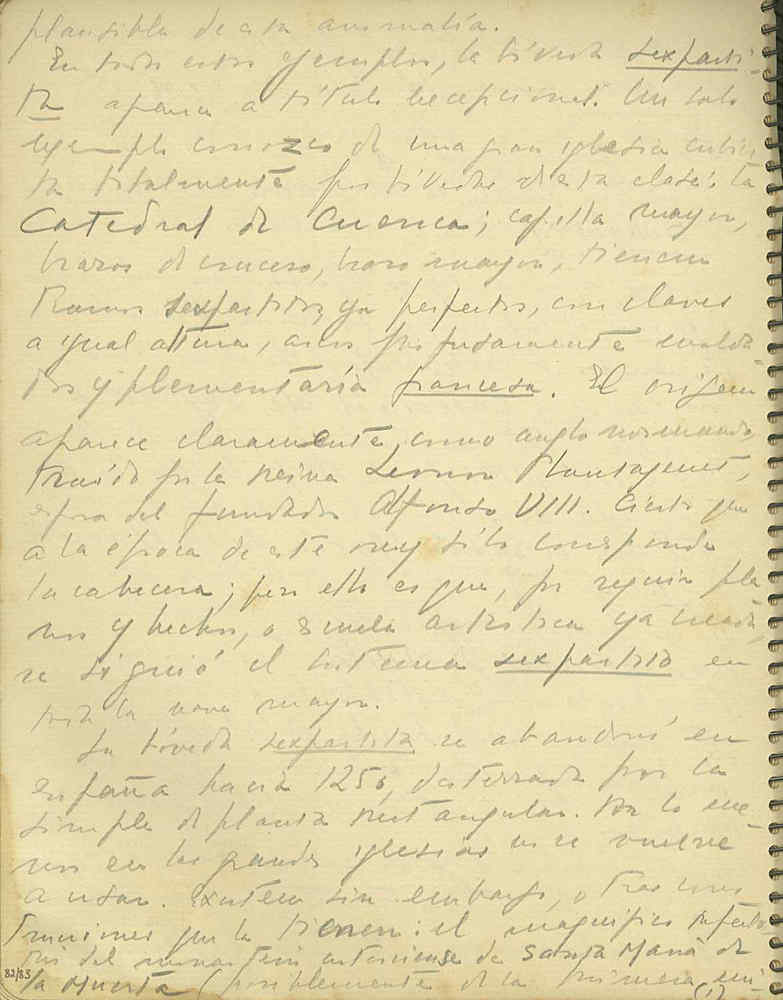 plausible de esta anomalía.
En todos estos ejemplos, la bóveda sexparti-
ta aparece a título excepcional. Un solo
ejemplo conozco de una gran iglesia cubier
ta totalmente por bóvedas de esta clase: la
Catedral de Cuenca; capilla mayor,
brazos de crucero, mayor, tienen
tramos sexpartitos, ya perfectos, con claves
a ygual altura, arcos profusamente molda
dos y plementaría francesa. El origen
aparece claramente, como anglo normando,
traído por la reina Leonor Plantagenet,
esposa del fundador Alfonso VIII. Cierto que
a la época de este rey sólo corresponde
la cabecera; pero ello es que, por seguir pla
nos y hechos, o escuela artística ya creada,
se siguió el sistema sexpartito en
toda la nave mayor.
La bóveda sexpartita se abandonó en
España hacia 1250, desterrada por la
simple de planta rectangular. Por lo me-
nos en las grandes iglesias no se vuelve
a usar. Existen sin embargo, otras cons
trucciones que la tienen: el magnífico refecto
rio del monasterio cisterciense de Santa María de
la Huerta (posiblemente de la primera mi-
82/83